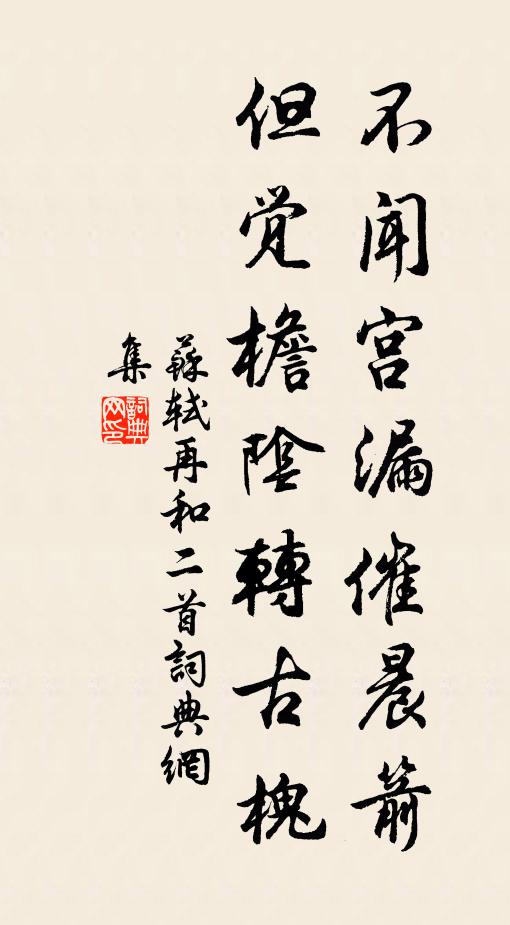 不闻宫漏催晨箭
但觉檐陰轉古槐
蘇軾再和二首詞典網
集
詞典
网印